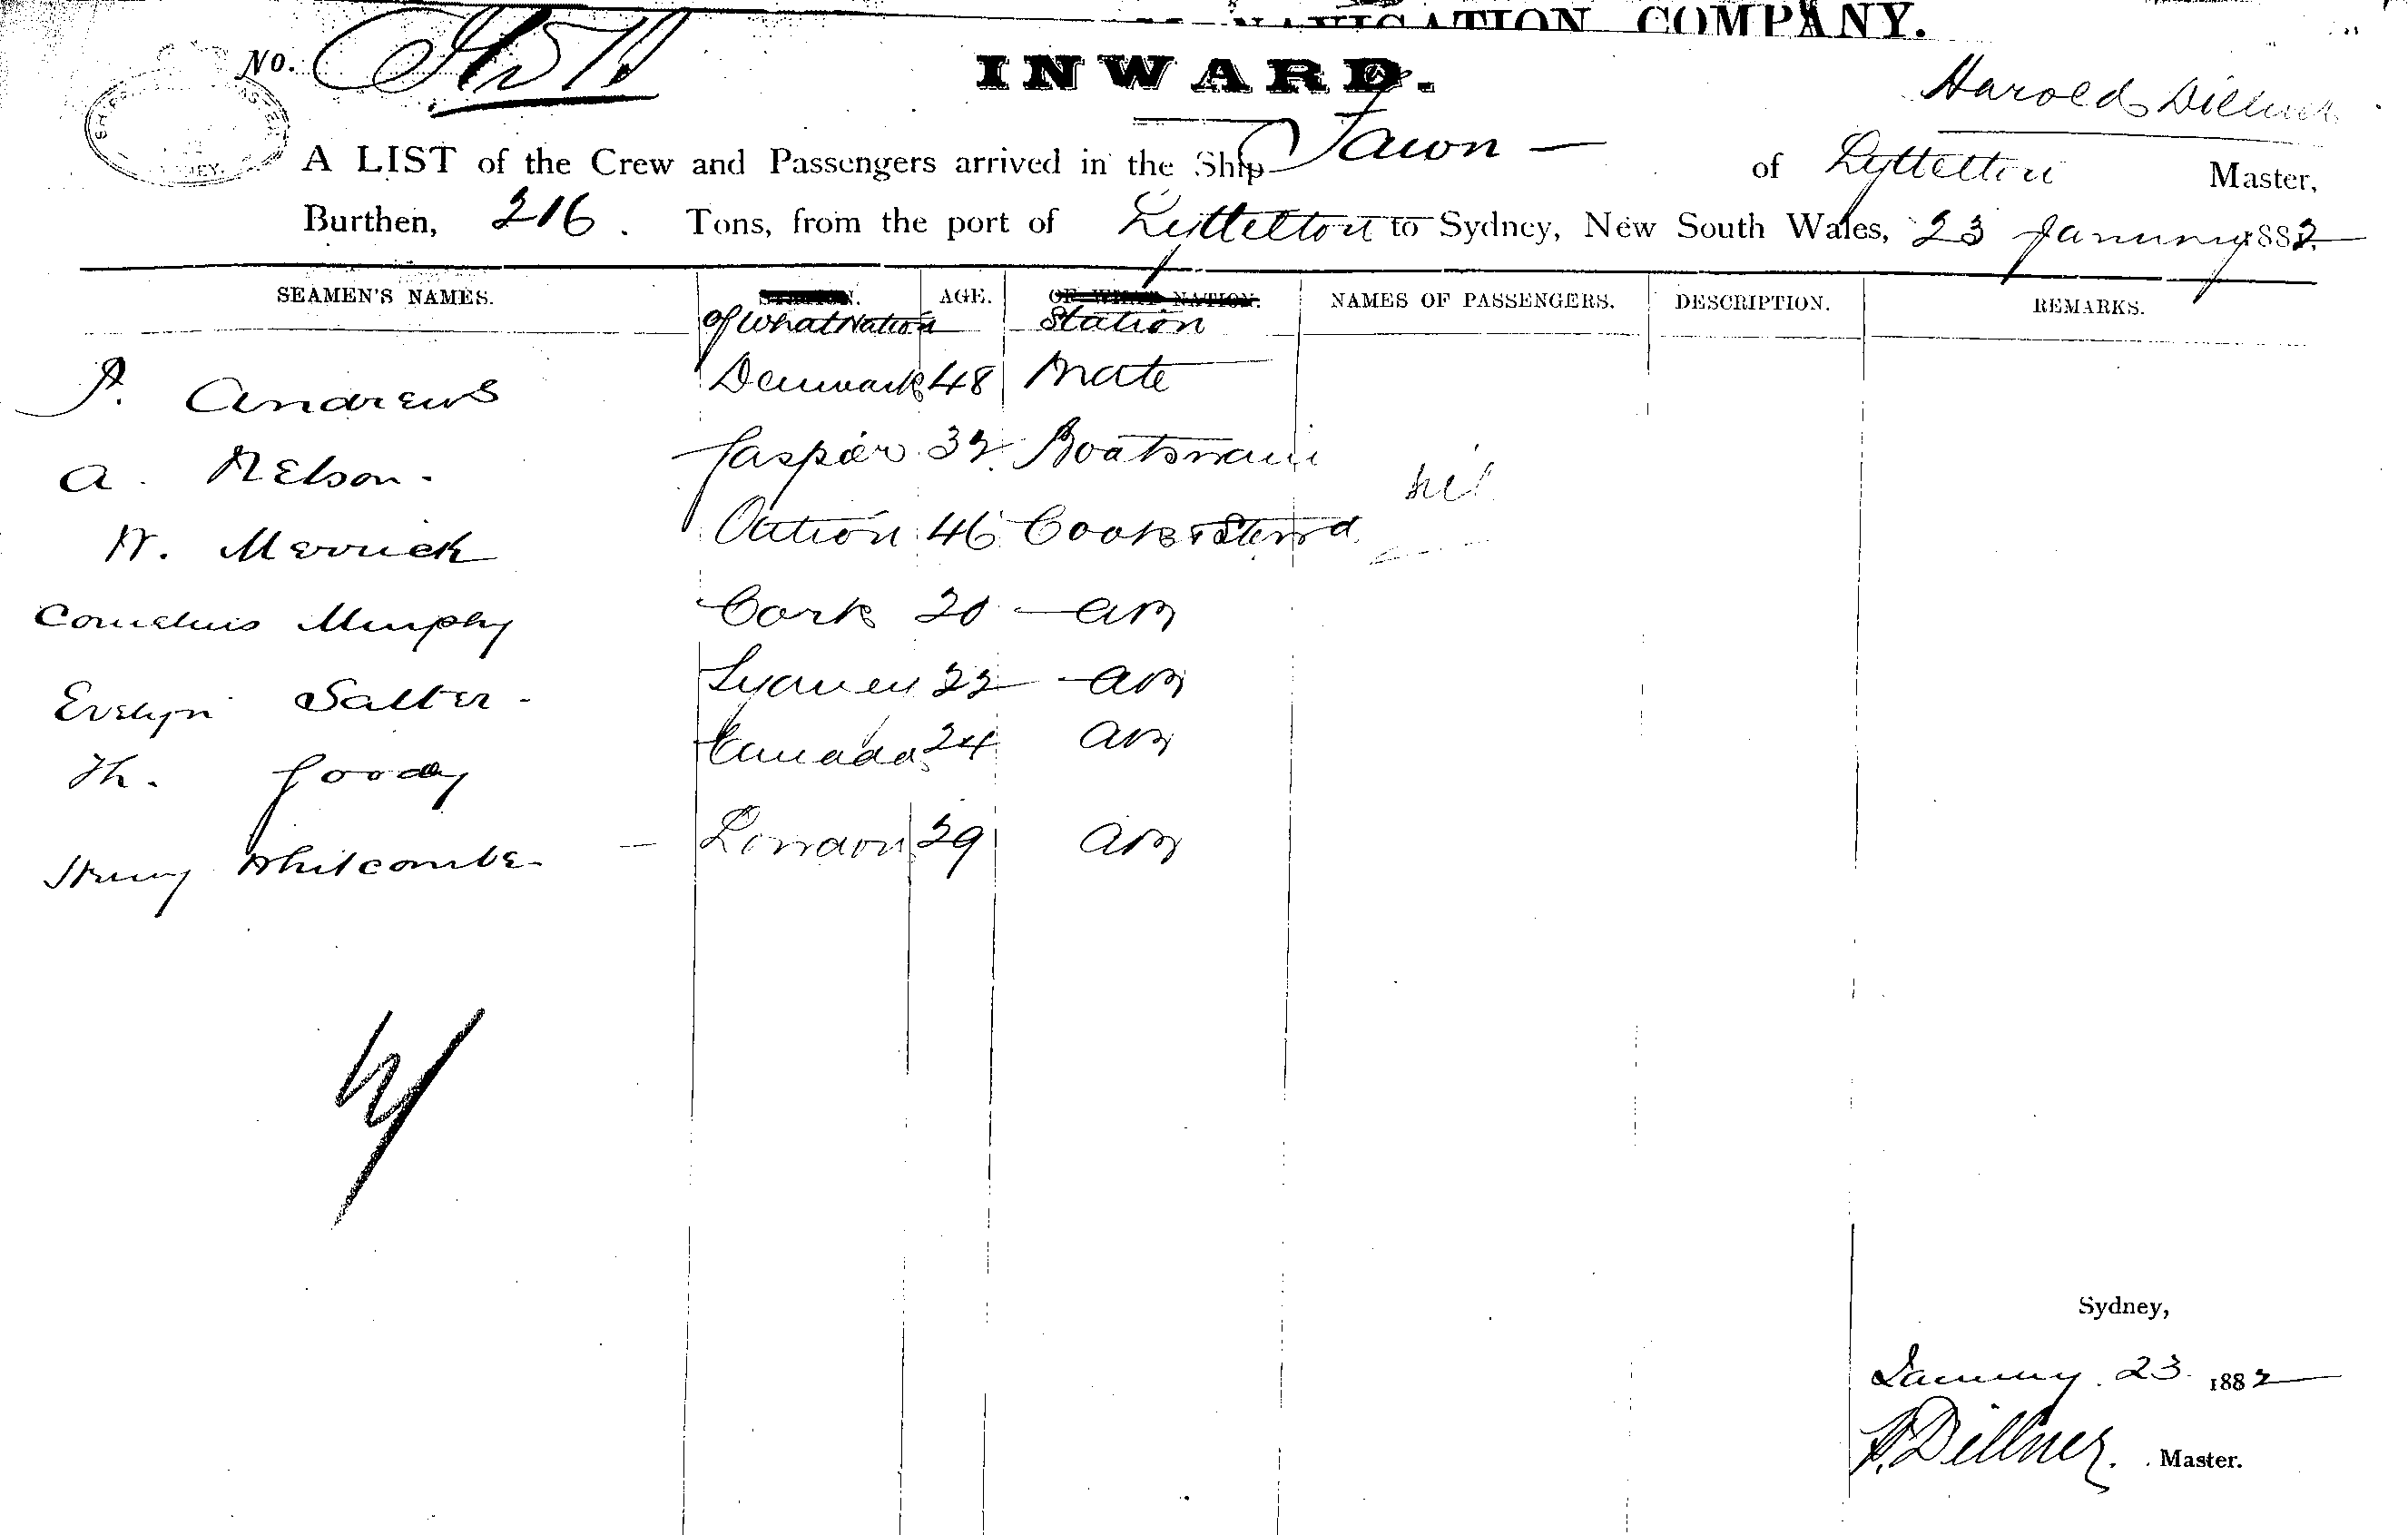 NAVIGATION COMPANY.
No.
INWARD.
Harold Dillner
A LIST of the Crew and Passengers arrived in the Ship Fawn — of Lyttelton Master,
Burthen, 216. Tons, from the port of Lyttelton to Sydney, New South Wales, 23 January 1882.
SEAMEN'S NAMES. STATION. AGE. OF WHAT NATION. NAMES OF PASSENGERS. DESCRIPTION. REMARKS.
Of What Nation Station
P. Andrews Denmark 48 Mate
A. Nelson. 32 Boatswain nil
W. Merrick 46 Cook & Stewd
Cornelius Murphy Cork 20 — AB
Evelyn Salter - Sydney 22 — AB
Th. Goody Canada 24 AB
Henry Whitcombe — London 29 AB
Sydney,
January 23 1882
H. Dillner. Master.